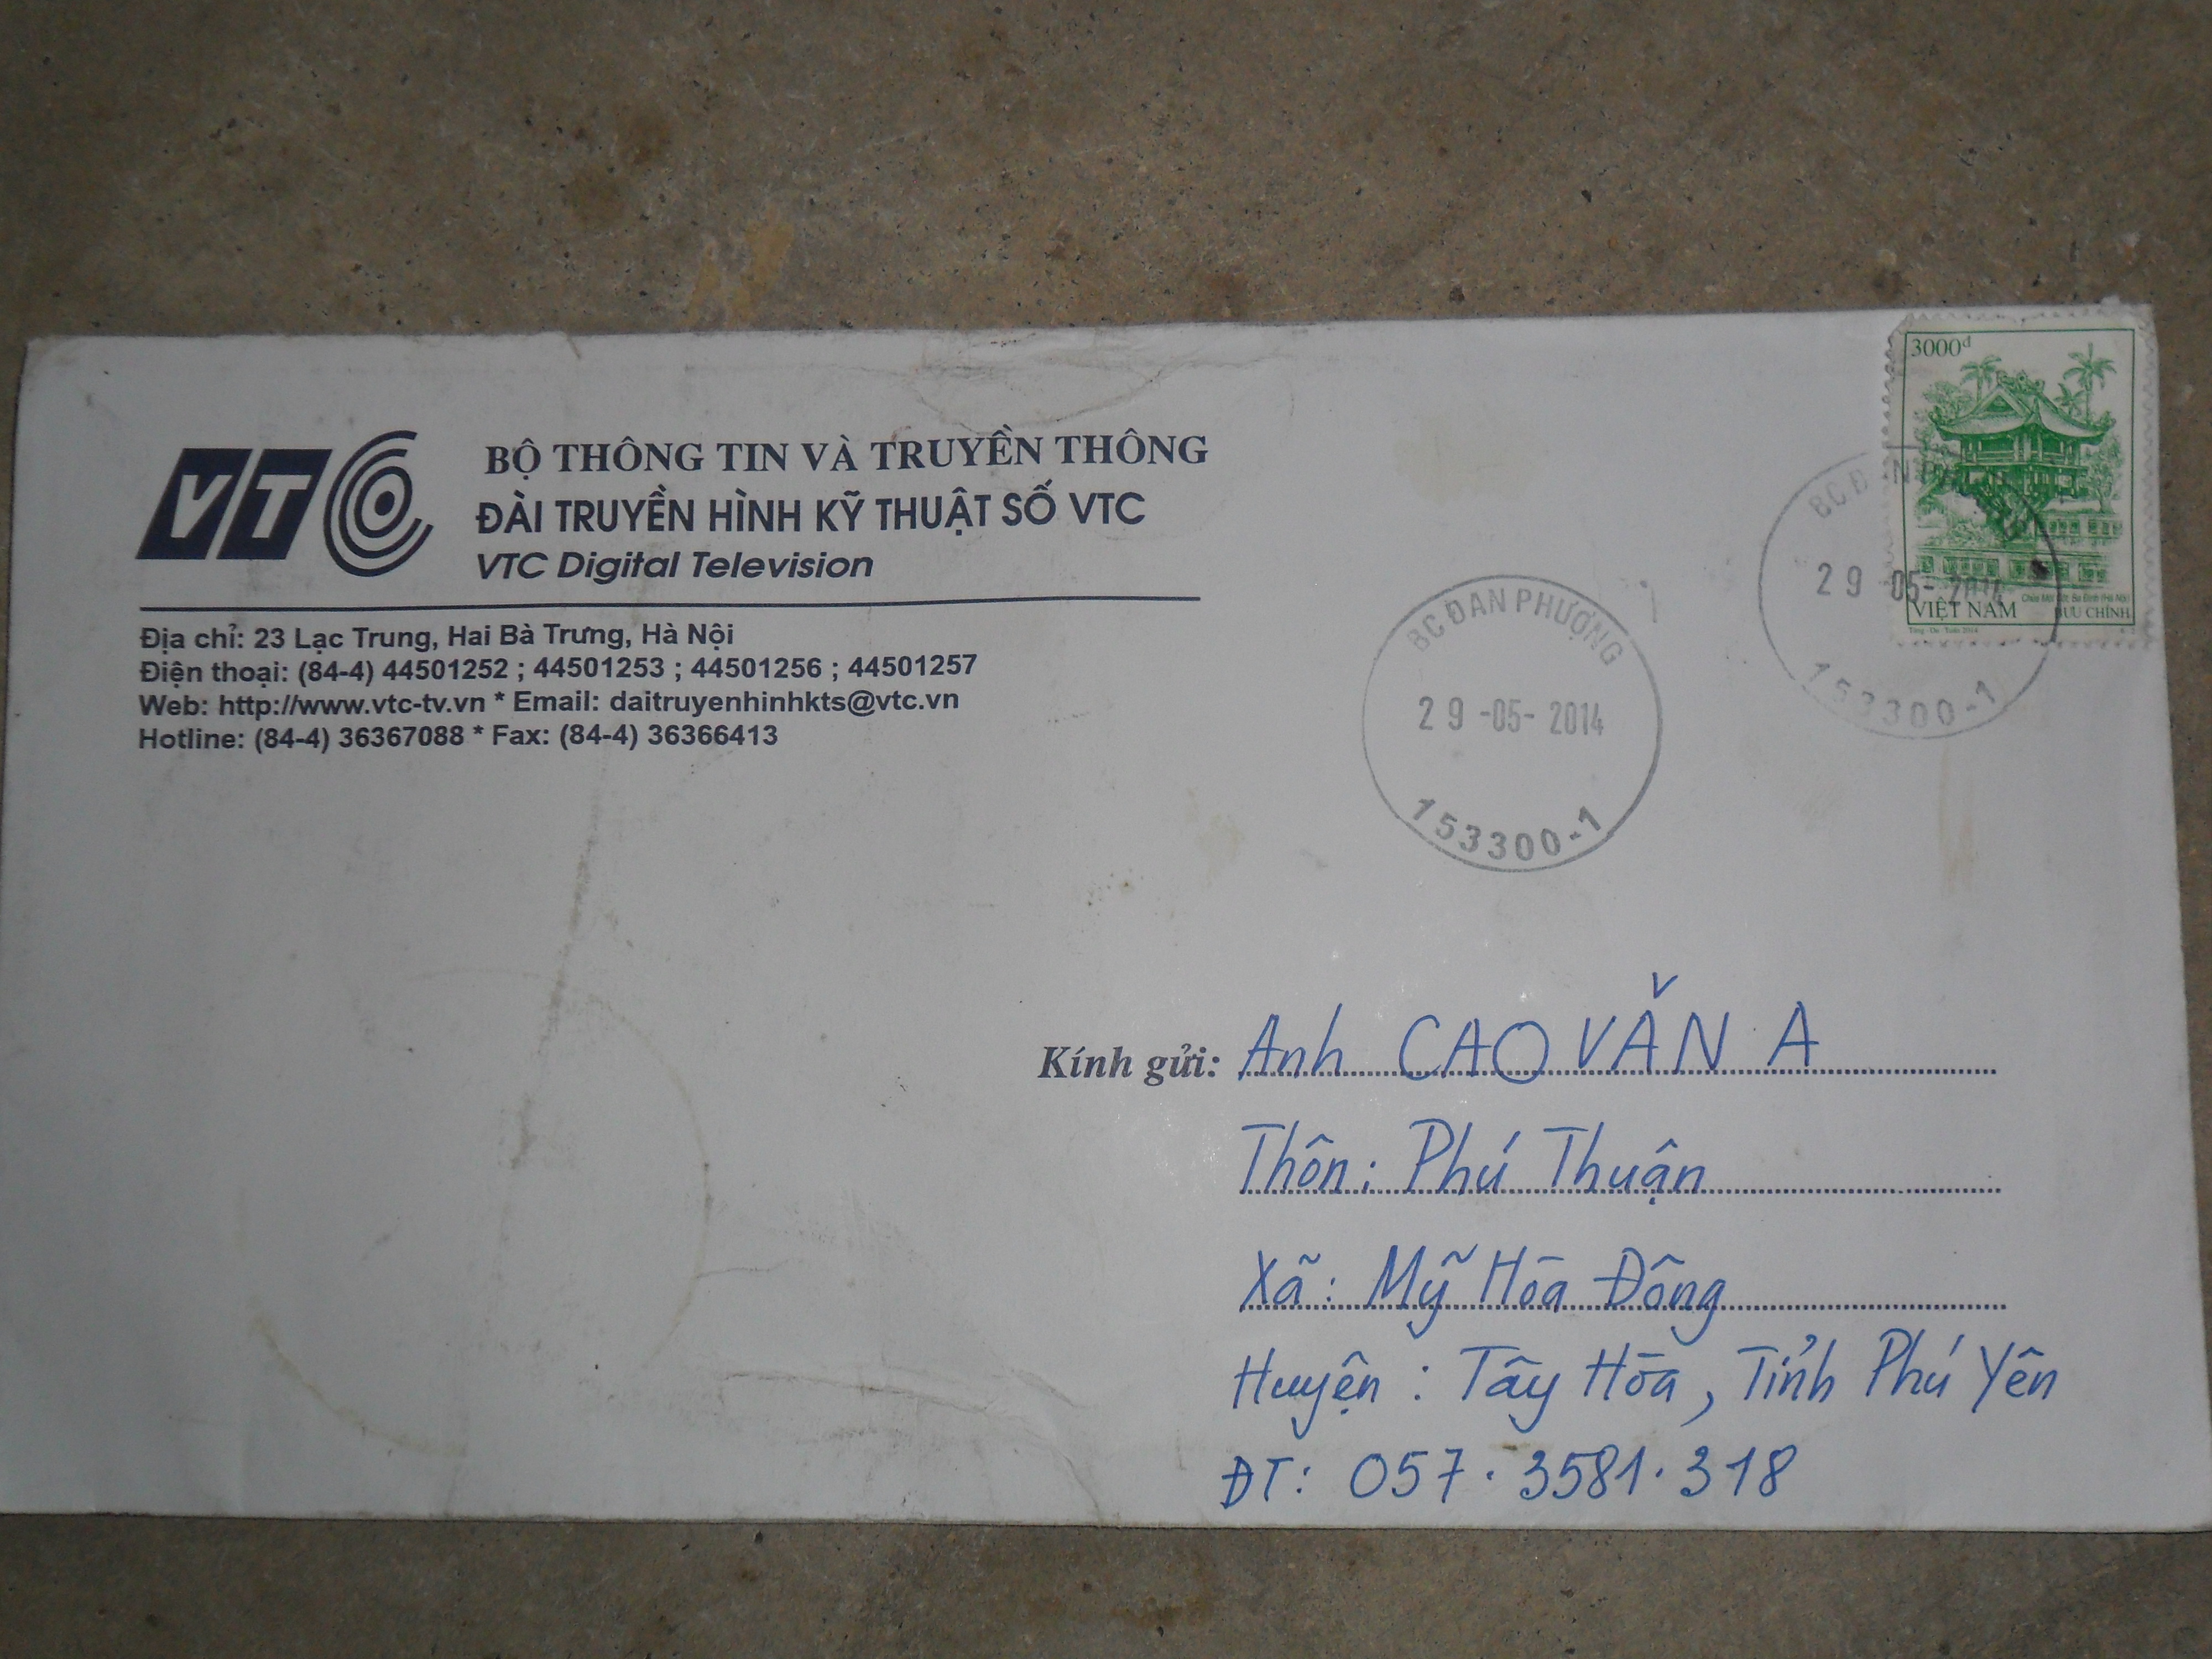 VTC
BỘ THÔNG TIN VÀ TRUYỀN THÔNG
ĐÀI TRUYỀN HÌNH KỸ THUẬT SỐ VTC
VTC Digital Television
Địa chỉ: 23 Lạc Trung, Hai Bà Trưng, Hà Nội
Điện thoại: (84-4) 44501252 ; 44501253 ; 44501256 ; 44501257
Web: http://www.vtc-tv.vn * Email: daitruyenhinhkts@vtc.vn
Hotline: (84-4) 36367088 * Fax: (84-4) 36366413
3000đ
VIỆT NAM
BƯU CHÍNH
29-05-2014
153300-1
BC ĐAN PHƯỢNG
29-05-2014
153300-1
Kính gửi: Anh CAO VĂN A
Thôn: Phú Thuận
Xã: Mỹ Hòa Đông
Huyện: Tây Hòa, Tỉnh Phú Yên
ĐT: 057.3581.318